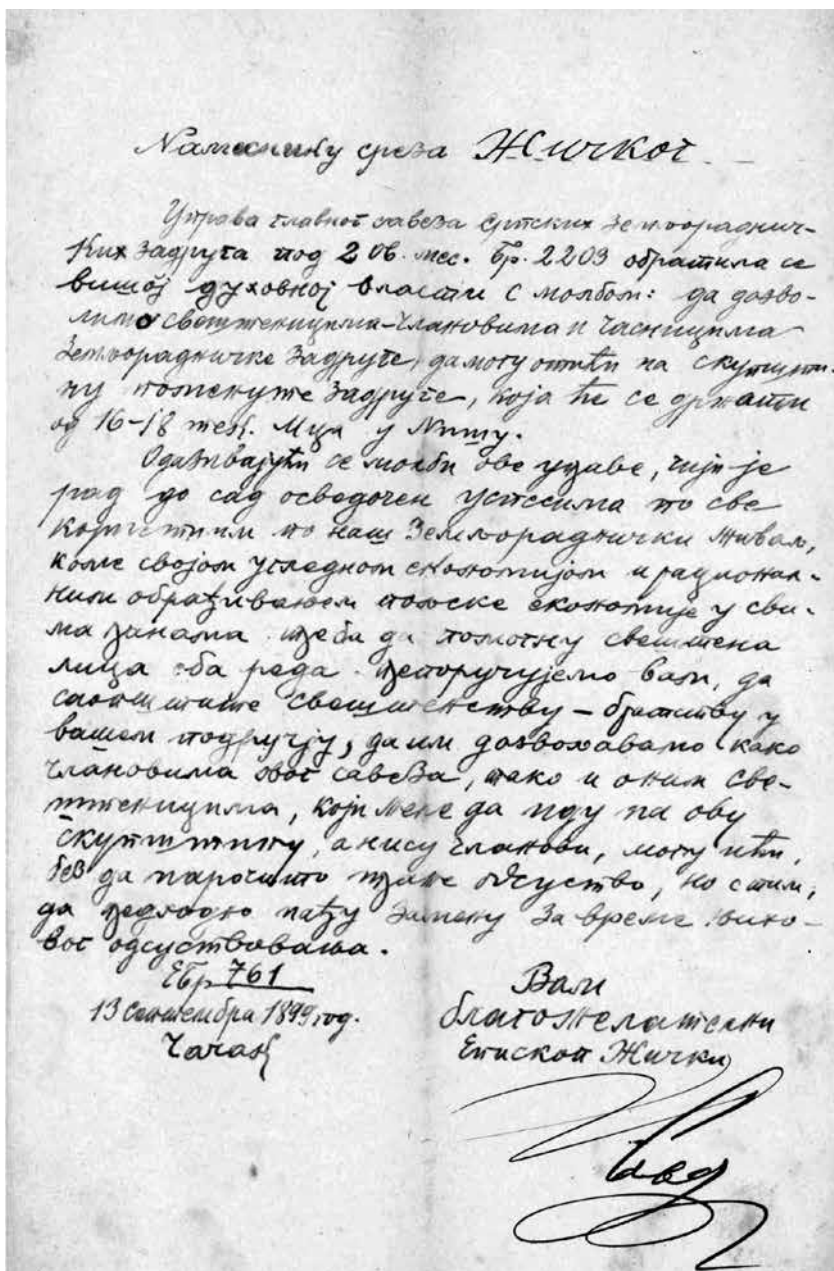 Намеснику среза Жичког
Управа главног савеза српских земљораднич-
ких задруга под 2 ов. мес. бр. 2203 обратила се
вишој духовној власти с молбом: да дозво-
лимо свештеницима-члановима и часницима
земљорадничке задруге, да могу отићи на скупшти-
ну поменуте задруге, која ће се држати
од 16-18 тек. м-ца у Нишу.
Одазивајући се молби ове управе, чији је
рад до сад осведочен успесима по све
корисним по наш земљораднички живаљ,
коме својом угледном економијом и рационал-
ним обрађивањем пољске економије у сви-
ма гранама треба да помогну свештена
лица оба реда препоручујемо вам, да
саопштите свештенству – братству у
вашем подручју, да им дозвољавамо како
члановима овог савеза, тако и оним све-
штеницима, који желе да иду на ову
скупштину, а нису чланови, могу ићи,
без да нарочито траже одсуство, но с тим,
да претходно нађу замену за време њихо-
вог одсуствовања.
ЕБр 761
13 септембра 1899 год.
Чачак
Вам
благожелатељни
Епископ Жички
Сава